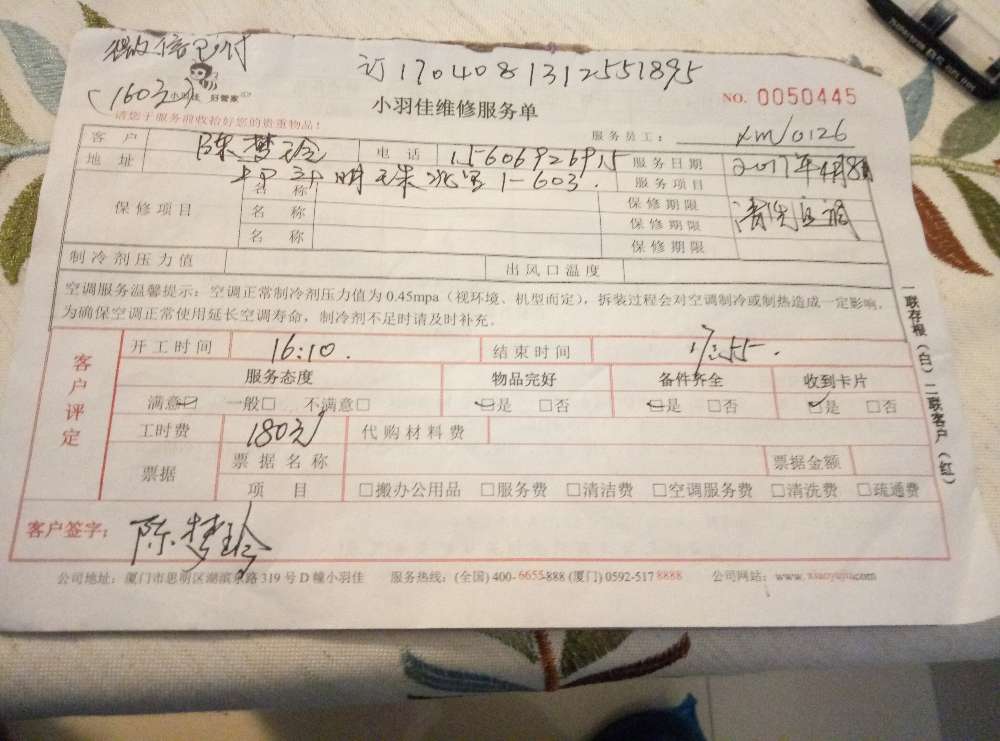 微信已付
订1704081312551895
(160元)
小羽佳 好管家
小羽佳维修服务单
NO. 0050445
请您于服务前收拾好您的贵重物品！
服务员工： xm/0126
客户 陈梦玲 电话 15606926915 服务日期 2017年4月8日
地址 明珠 1-603. 服务项目 清洗空调
保修项目
名称 保修期限
名称 保修期限
名称 保修期限
制冷剂压力值 出风口温度
空调服务温馨提示：空调正常制冷剂压力值为0.45mpa（视环境、机型而定），拆装过程会对空调制冷或制热造成一定影响。
为确保空调正常使用延长空调寿命，制冷剂不足时请及时补充。
客户评定
开工时间 16:10. 结束时间 17:55.
服务态度 物品完好 备件齐全 收到卡片
满意☑ 一般□ 不满意□ ☑是 □否 ☑是 □否 ☑是 □否
工时费 180元 代购材料费
票据 票据名称 票据金额
项目 □搬办公用品 □服务费 □清洁费 □空调服务费 □清洗费 □疏通费
客户签字： 陈梦玲
公司地址：厦门市思明区湖滨东路319号D幢小羽佳 服务热线：(全国) 400-6655-888 (厦门) 0592-517 8888 公司网站：www.xiaoyujia.com
一联存根（白）二联客户（红）